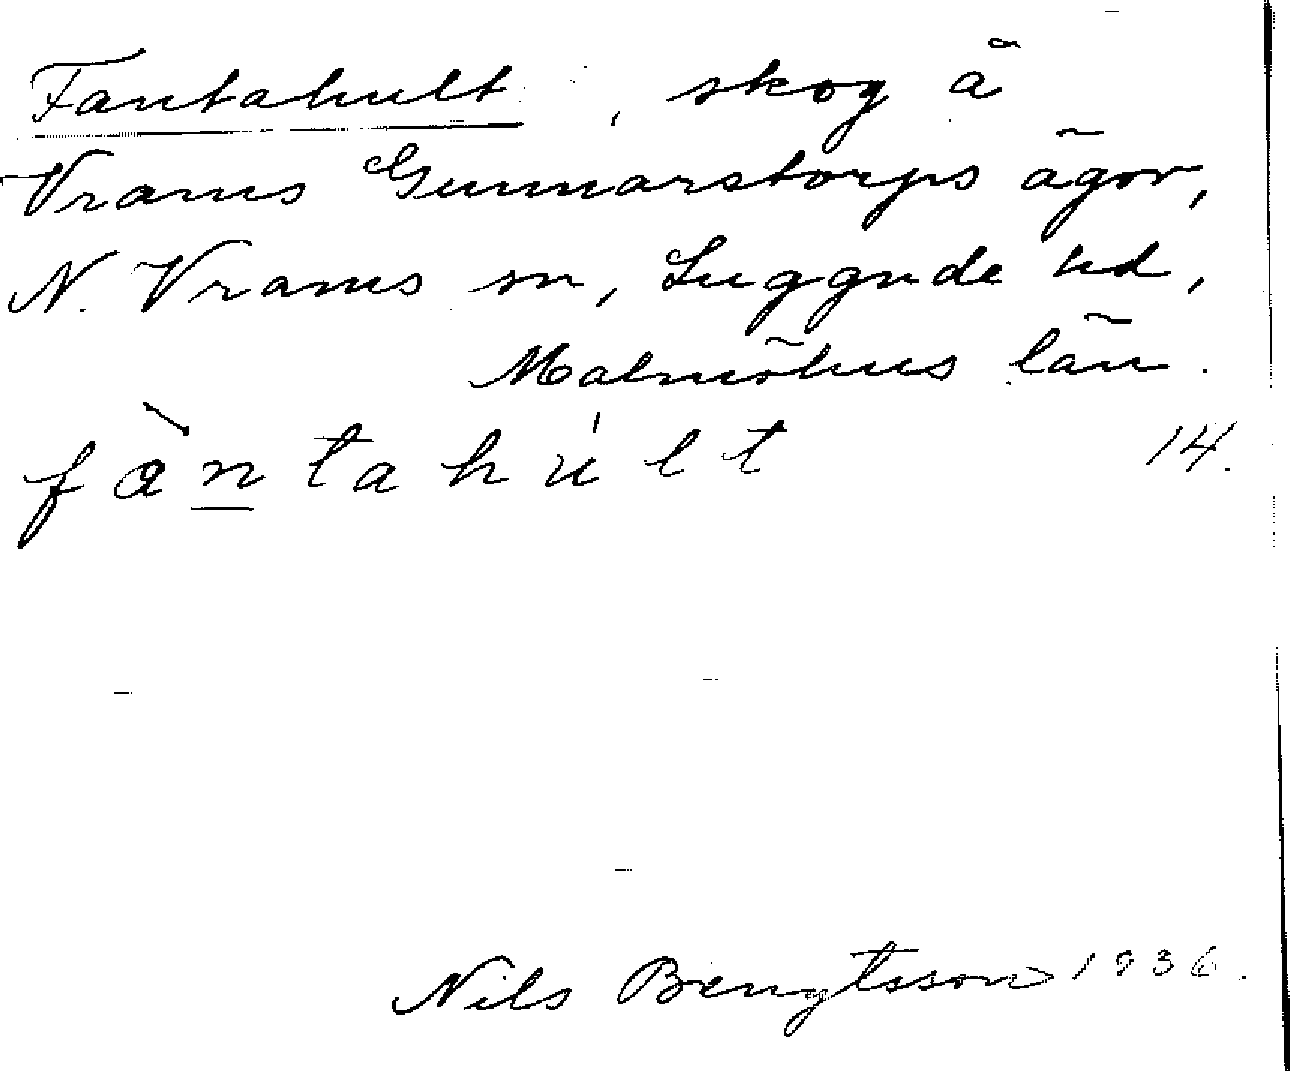 Fantahult, skog å
Vrams Gunnarstorps ägor,
N. Vrams sn, Luggude hd,
Malmöhus län.
fàntahúlt 14.
Nils Bengtsson 1936.